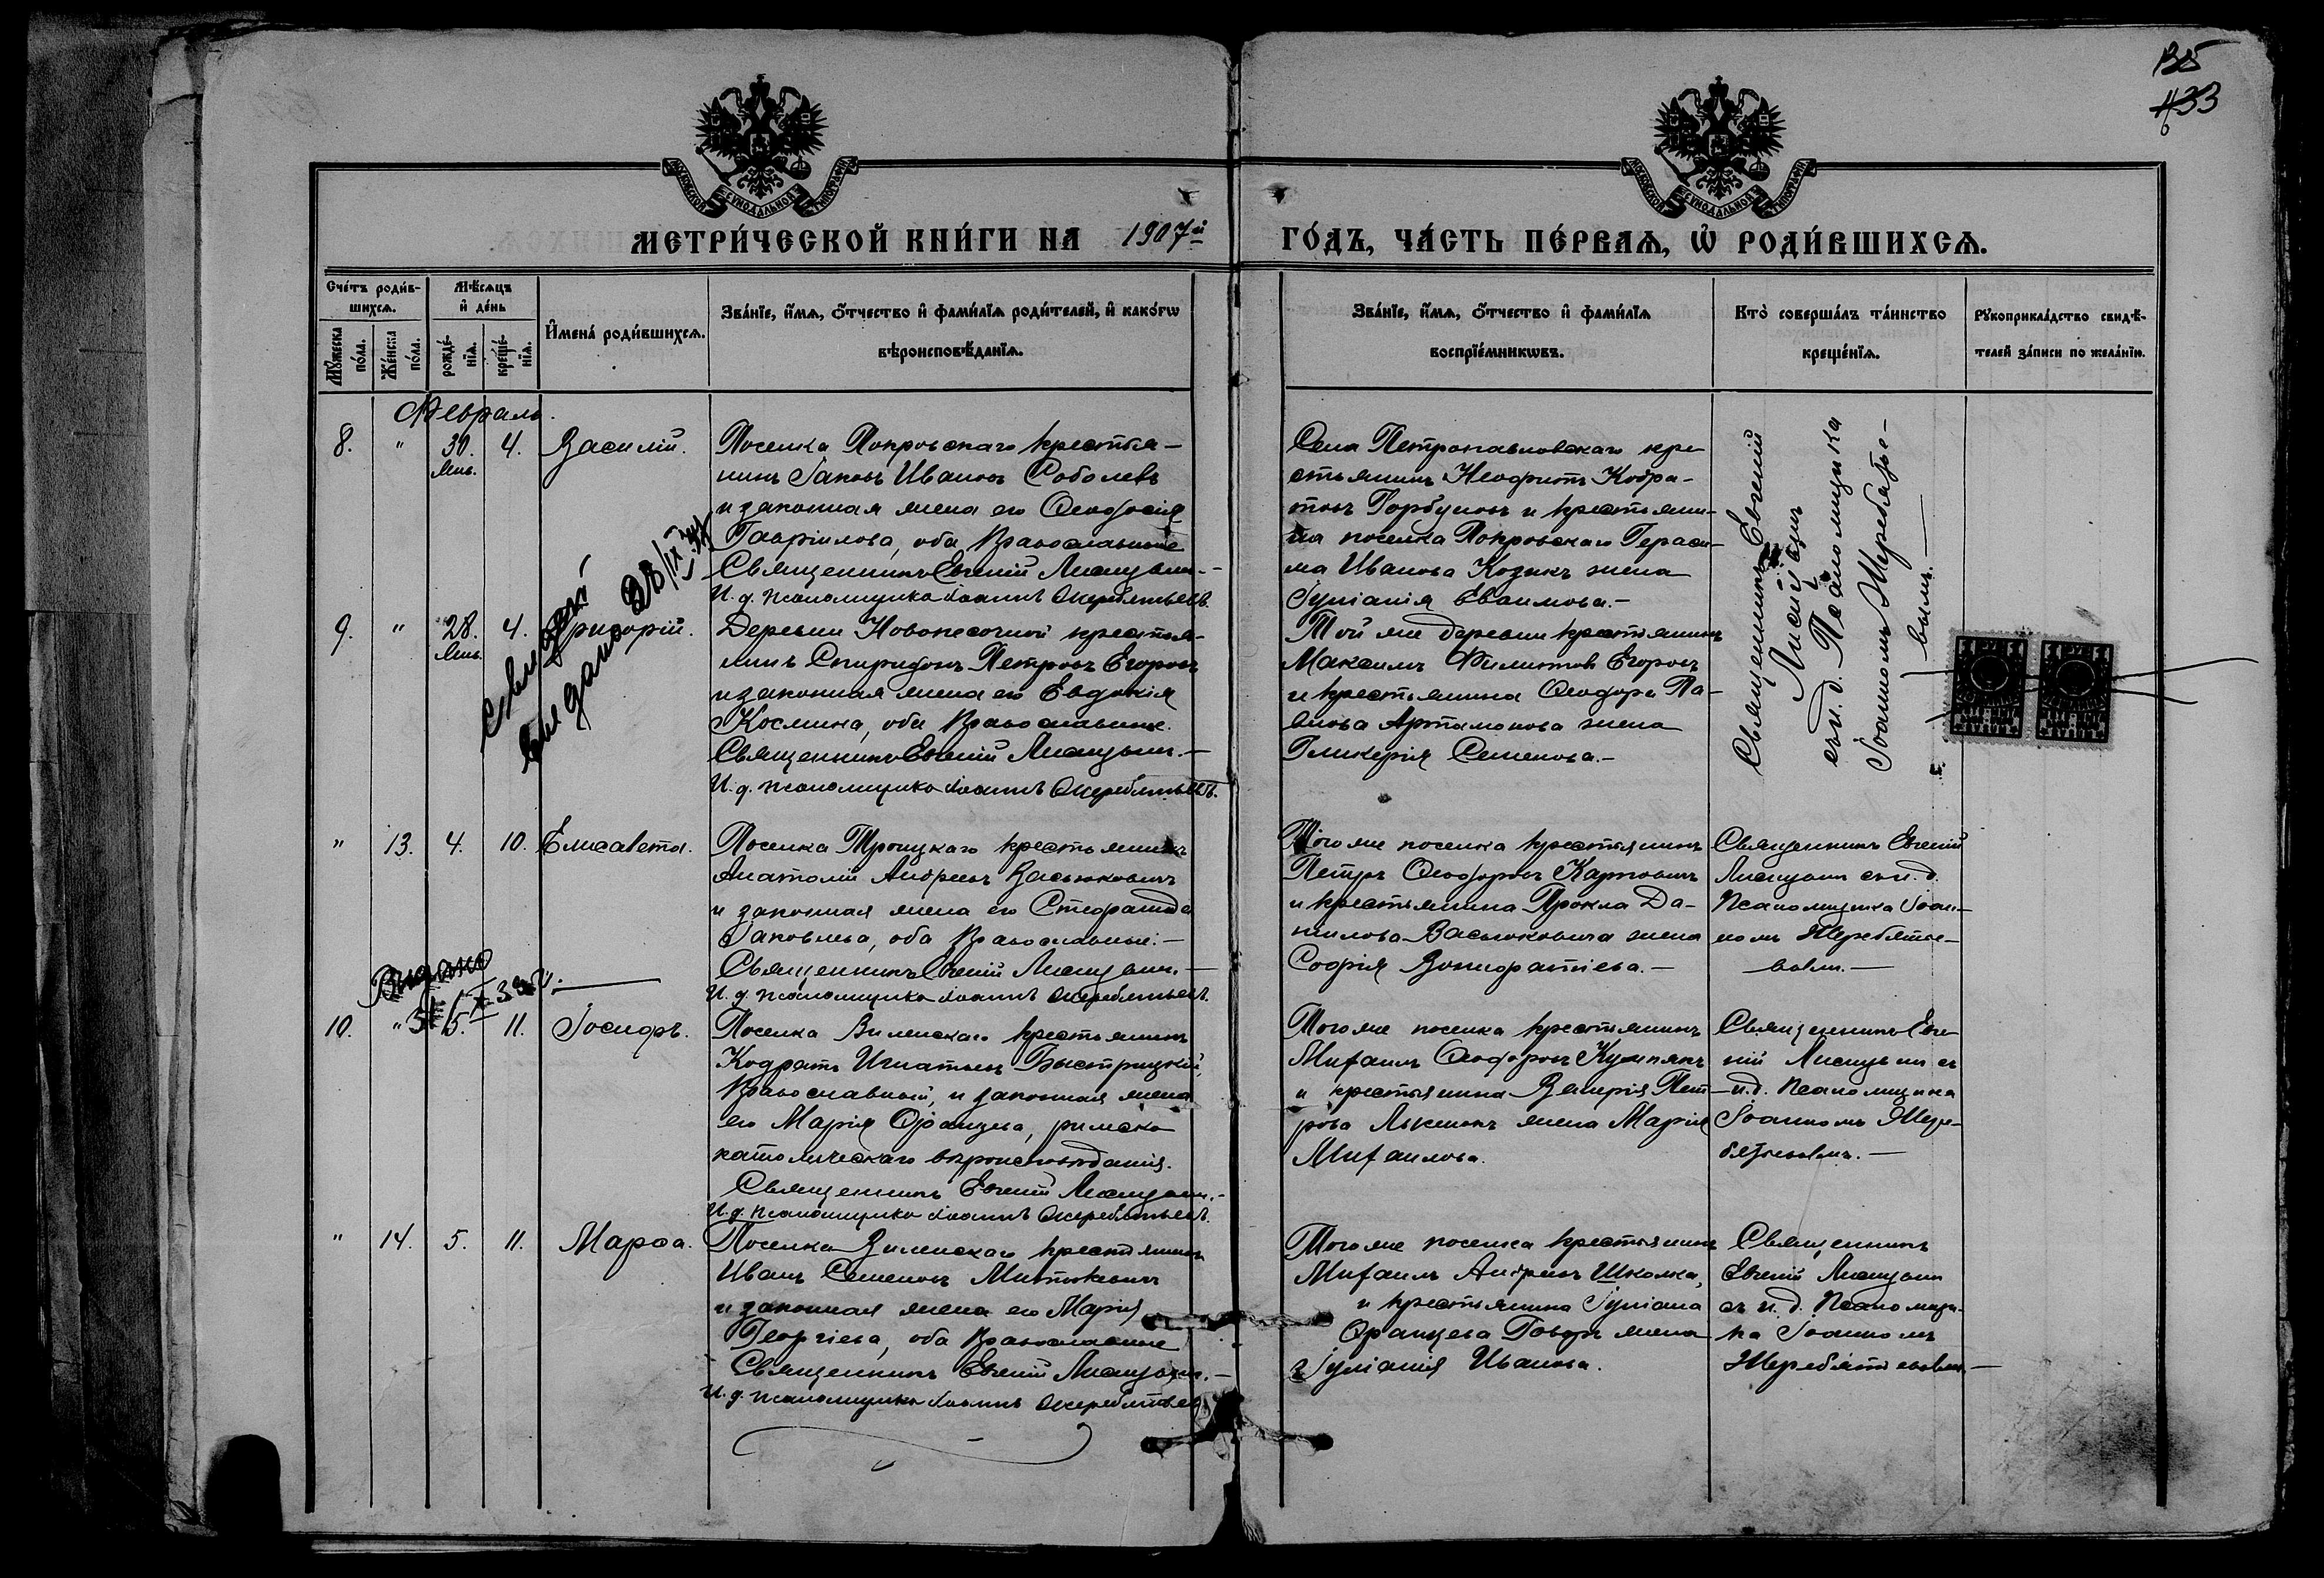 135
433
МОСКОВСКОЙ СѴНОДАЛЬНОЙ ТИПОГРАФІИ
МОСКОВСКОЙ СѴНОДАЛЬНОЙ ТИПОГРАФІИ
МЕТРИ́ЧЕСКОЙ КНИ́ГИ НА 1907й
ГО́ДЪ, ЧА́СТЬ ПЕ́РВАѦ, Ѽ РОДИ́ВШИХСѦ.
Сче́тъ роди́в-
шихсѧ.
Мꙋ́жеска по́ла.
Же́нска по́ла.
Мѣ́сѧцъ
и҆ де́нь
рожде́-
нїѧ.
креще́-
нїѧ.
И҆мена̀ роди́вшихсѧ.
Зва́нїе, и҆́мѧ, ѻ҆́тчество и҆ фами́лїѧ роди́телей, и҆ како́гѡ
вѣроисповѣ́данїѧ.
Зва́нїе, и҆́мѧ, ѻ҆́тчество и҆ фами́лїѧ
воспрїе́мникѡвъ.
Кто̀ соверша́лъ та́инство
креще́нїѧ.
Рꙋкоприкла́дство свидѣ́-
телей за́писи по жела́нїю.
Февраль.
8. " 30. 4. Василій.
Янв.
Поселка Покровскаго крестья-
нинъ Іаковъ Ивановъ Соболевъ
и законная жена его Ѳеодосія
Гавріилова, оба Православные
Священникъ Евгеній Лисицынъ.-
И. д. псаломщика Іоаннъ Жеребятьевъ.
Села Петропавловскаго кре-
стьянинъ Неофитъ Кодра-
товъ Горбуновъ и крестьяни-
на поселка Покровскаго Гераси-
ма Иванова Козикъ жена
Іуліанія Евѳимова.-
Священникъ Евгеній
Лисицынъ
съ и. д. Псаломщика
Іоанномъ Жеребятье-
вымъ.-
9. " 28. 4. Григорій.
Янв.
выдано 28/IX
Деревни Новопесочной крестья-
нинъ Спиридонъ Петровъ Егоровъ
и законная жена его Евдокія
Космина, оба Православные.
Священникъ Евгеній Лисицынъ.-
И. д. псаломщика Іоаннъ Жеребятьевъ.
Той же деревни крестьянинъ
Максимъ Филиповъ Егоровъ
и крестьянина Ѳеодора Па-
влова Артамонова жена
Гликерія Семенова.-
" 13. 4. 10. Елисавета.
Поселка Троицкаго крестьянинъ
Анатолій Андреевъ Васьковичъ
и законная жена его Стефанида
Іаковлева, оба Православные.-
Священникъ Евгеній Лисицынъ.-
И. д. псаломщика Іоаннъ Жеребятьевъ.
Того же поселка крестьянинъ
Петръ Ѳеодоровъ Карповичъ
и крестьянина Прокла Да-
нилова Васьковича жена
Софія Вонифатіева.-
Священникъ Евгеній
Лисицынъ съ и. д.
Псаломщика Іоан-
номъ Жеребятье-
вымъ.-
Выдано
10. " 5. 11. Іосифъ.
Поселка Виленскаго крестьянинъ
Кодратъ Игнатьевъ Быстрицкій,
Православный, и законная жена
его Марія Францева, римско
католическаго вѣроисповѣданія.
Священникъ Евгеній Лисицынъ.-
И. д. псаломщика Іоаннъ Жеребятьевъ.
Того же поселка крестьянинъ
Михаилъ Ѳеодоровъ
и крестьянина Валерія Пет-
рова жена Марія
Михаилова.
Священникъ Евге-
ній Лисицынъ съ
и. д. Псаломщика
Іоанномъ Жере-
бятьевымъ.-
" 14. 5. 11. Марѳа.
Поселка Виленскаго крестьянинъ
Иванъ Семеновъ Митькевичъ
и законная жена его Марія
Георгіева, оба Православные
Священникъ Евгеній Лисицынъ.-
И. д. псаломщика Іоаннъ Жеребятьевъ
Того же поселка крестьянинъ
Михаилъ Андреевъ Школка,
и крестьянина Іуліана
Францева жена
Іуліанія Иванова.
Священникъ
Евгеній Лисицынъ
съ и. д. Псаломщи-
ка Іоанномъ
Жеребятьевымъ.-